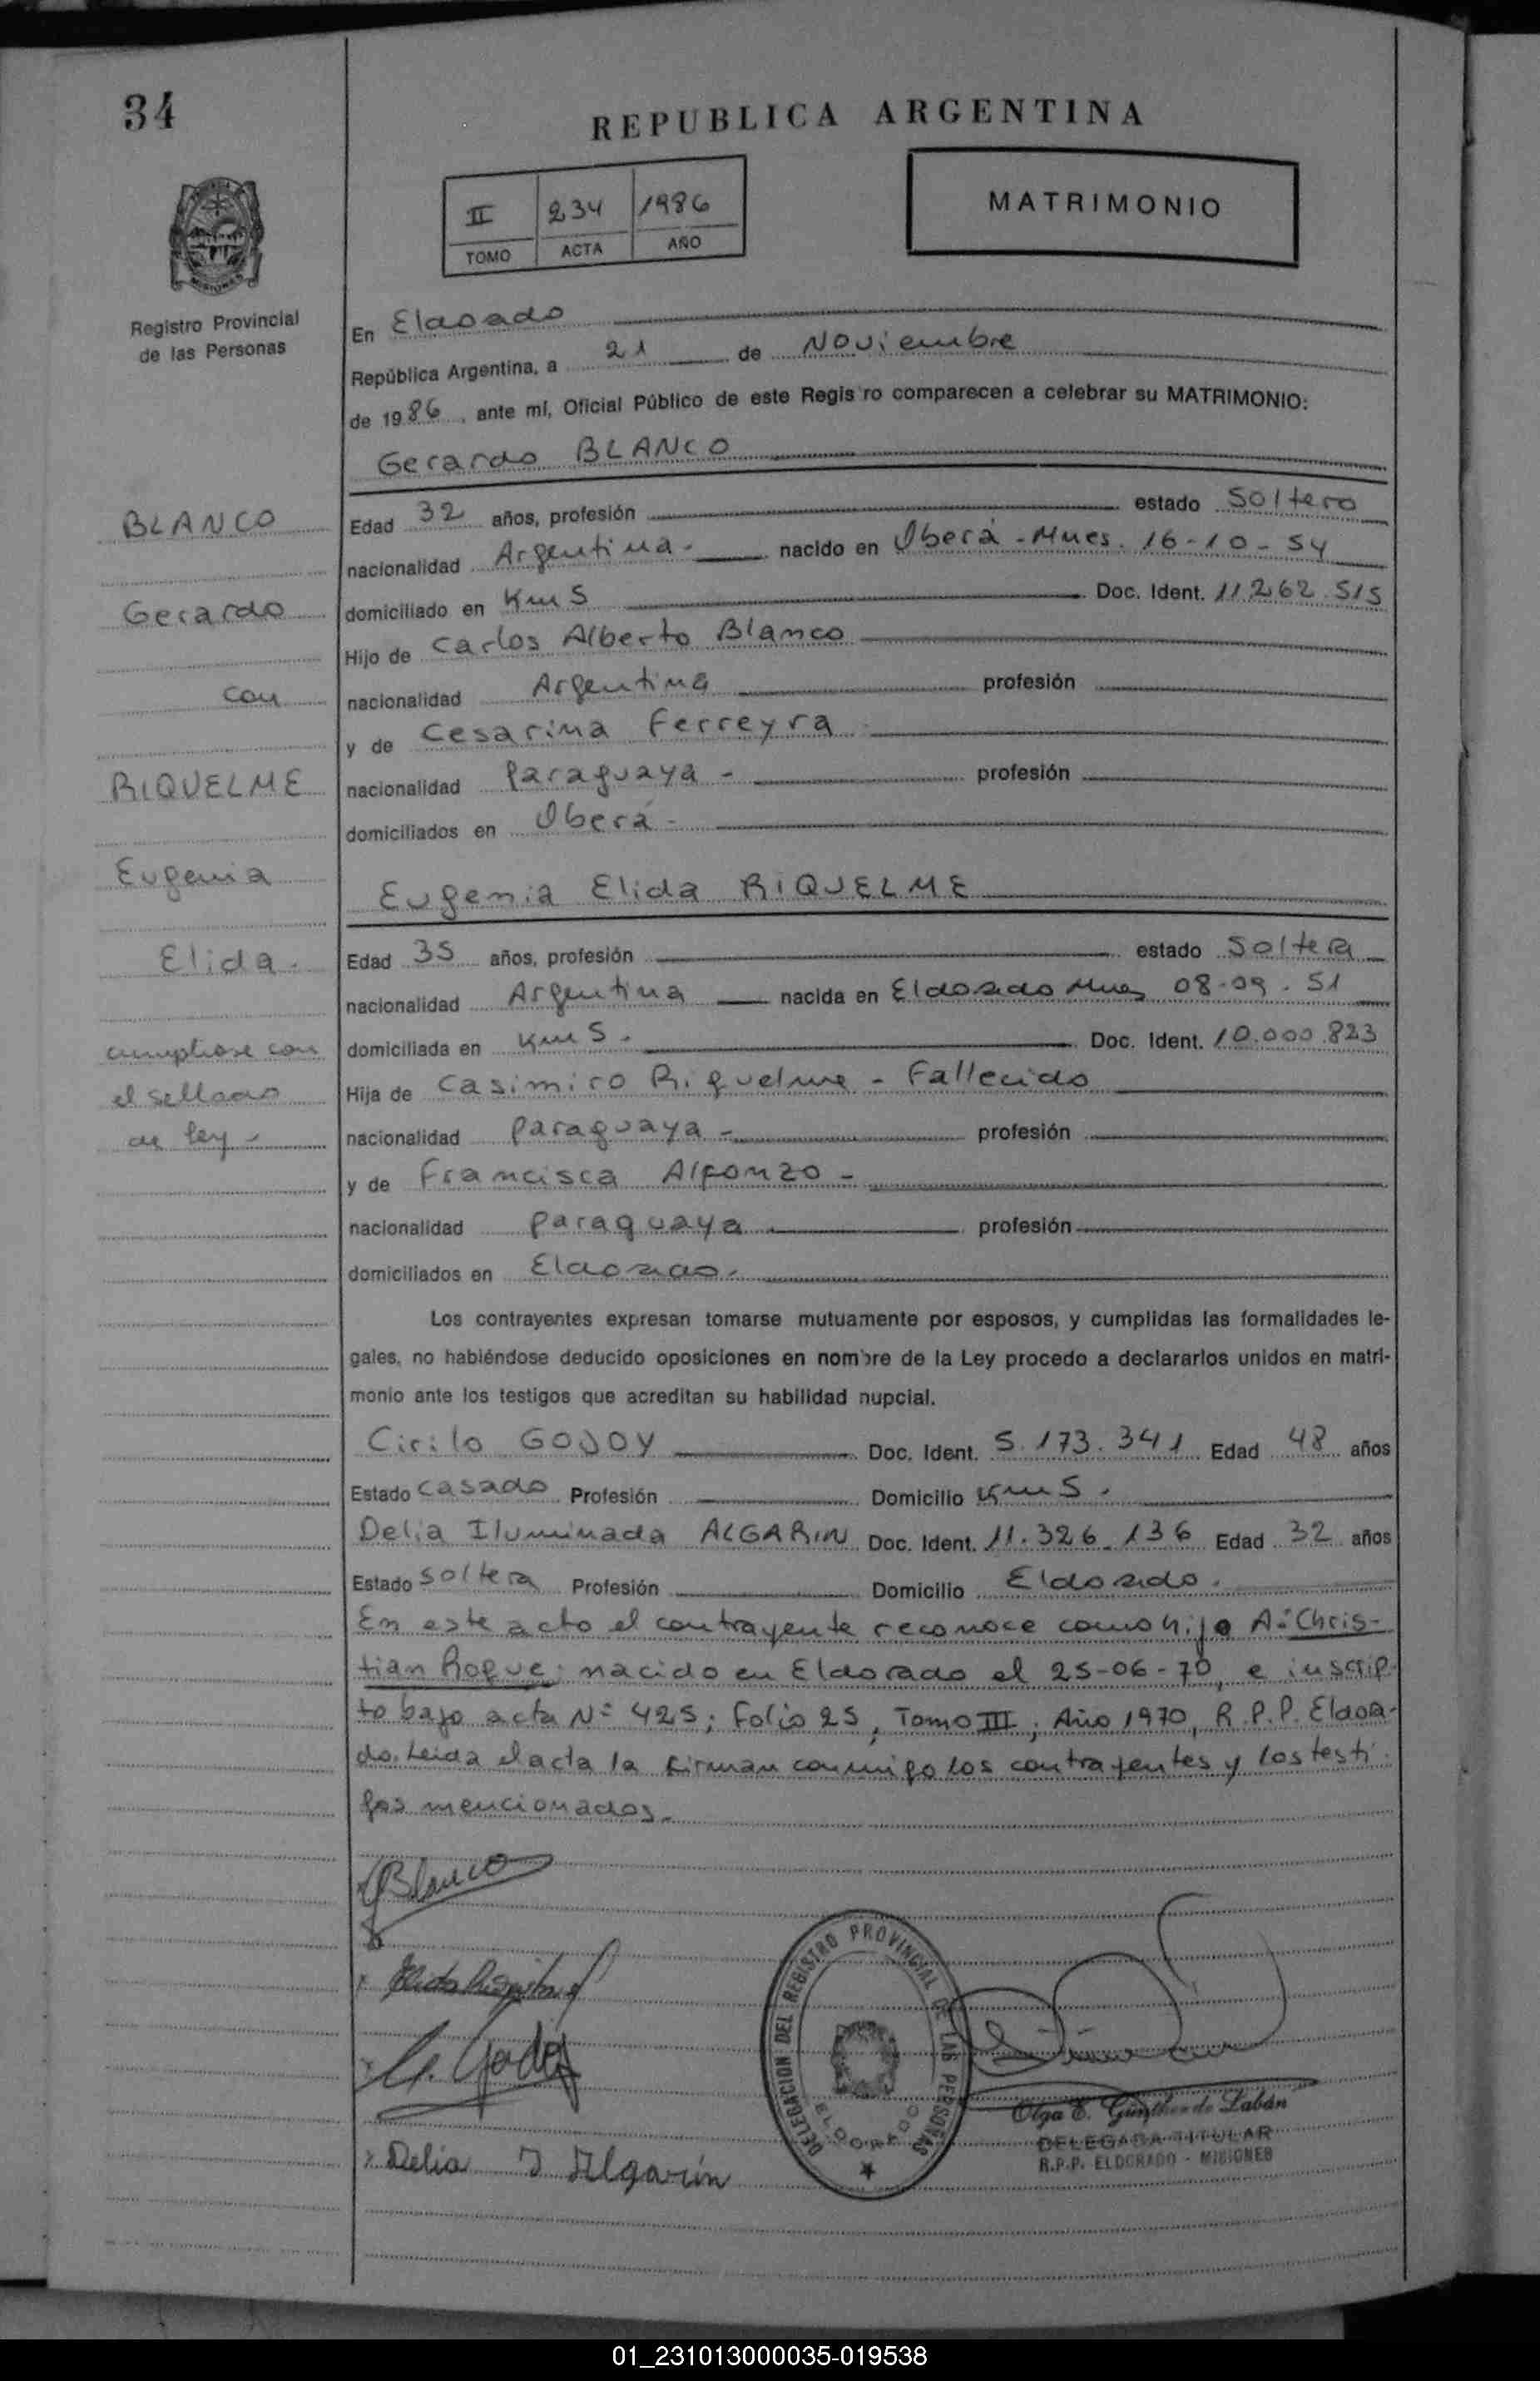 34
REPUBLICA ARGENTINA
II 234 1986
TOMO ACTA AÑO
MATRIMONIO
Registro Provincial
de las Personas
En Eldorado
República Argentina, a 21 de Noviembre
de 1986, ante mí, Oficial Público de este Regis ro comparecen a celebrar su MATRIMONIO:
Gerardo BLANCO
BLANCO
Gerardo
con
RIQUELME
Eugenia
Elida.
cumpliose con
el sellado
de ley-
Edad 32 años, profesión estado Soltero
nacionalidad Argentina- nacido en Oberá-Mnes. 16-10-54
domiciliado en Km 5 Doc. Ident. 11.262.515
Hijo de Carlos Alberto Blanco
nacionalidad Argentina profesión
y de Cesarina Ferreyra
nacionalidad Paraguaya- profesión
domiciliados en Oberá-
Eugenia Elida RIQUELME
Edad 35 años, profesión estado Soltera
nacionalidad Argentina nacida en Eldorado Mnes 08-09-51
domiciliada en Km 5. Doc. Ident. 10.000.823
Hija de Casimiro Riquelme - Fallecido
nacionalidad Paraguaya- profesión
y de Francisca Alfonzo-
nacionalidad Paraguaya profesión
domiciliados en Eldorado.
Los contrayentes expresan tomarse mutuamente por esposos, y cumplidas las formalidades le-
gales, no habiéndose deducido oposiciones en nombre de la Ley procedo a declararlos unidos en matri-
monio ante los testigos que acreditan su habilidad nupcial.
Cirilo GODOY Doc. Ident. 5.173.341 Edad 48 años
Estado Casado Profesión Domicilio Km 5.
Delia Iluminada ALGARIN Doc. Ident. 11.326.136 Edad 32 años
Estado soltera Profesión Domicilio Eldorado.
En este acto el contrayente reconoce como hijo A: Chris-
tian Roque; nacido en Eldorado el 25-06-70, e inscrip-
to bajo acta Nº 425; Folio 25, Tomo III, Año 1970, R.P.P. Eldora-
do. Leida el acta la firman conmigo los contrayentes y los testi-
gos mencionados.
Blanco
C. Godoy
Delia I Algarín
DELEGACION DEL REGISTRO PROVINCIAL DE LAS PERSONAS
ELDORADO
Olga E. Günther de Labán
DELEGADA TITULAR
R.P.P. ELDORADO - MISIONES
01_231013000035-019538